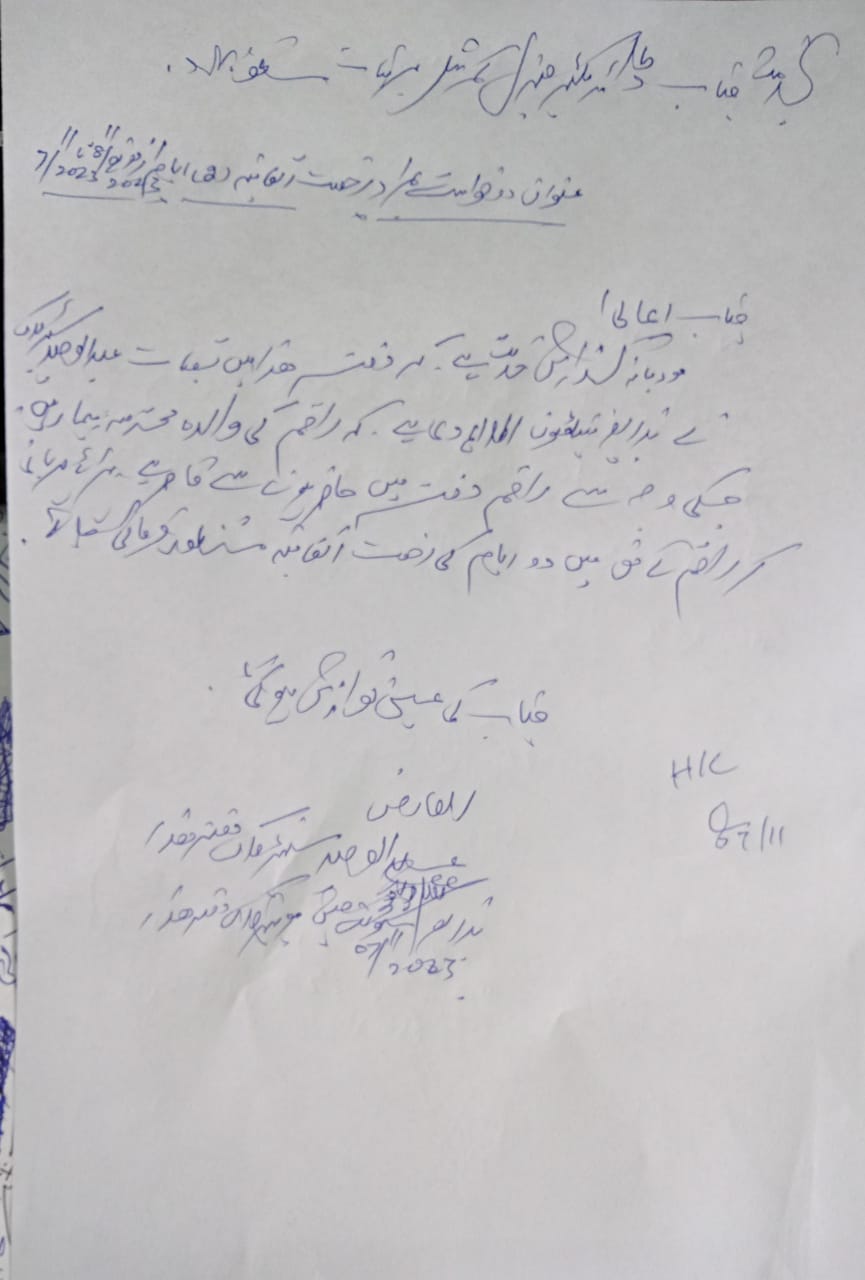 بخدمت جناب ڈائریکٹر جنرل کمرشل
عنوان درخواست بمراد رخصت اتفاقیہ دو ایام از مورخہ 7/11/2023 تا 8/11/2023
جناب اعالی!
مودبانہ گذارش خدمت ہے۔ کہ دفتر ھذا میں تعینات عبدالوحید
نے بذریعہ ٹیلیفون اطلاع دی ہے۔ کہ راقم کی والدہ محترمہ بیمار ہے۔
جسکی وجہ سے راقم دفتر میں حاضر ہونے سے قاصر ہے۔ برائے مہربانی
کر راقم کے حق میں دو ایام کی رخصت اتفاقیہ منظور فرمائی
جناب کی عین نوازش ہو گی۔
العارض
عبدالوحید دفتر ھذا
بذریعہ دفتر ھذا
07/11/2023
07/11